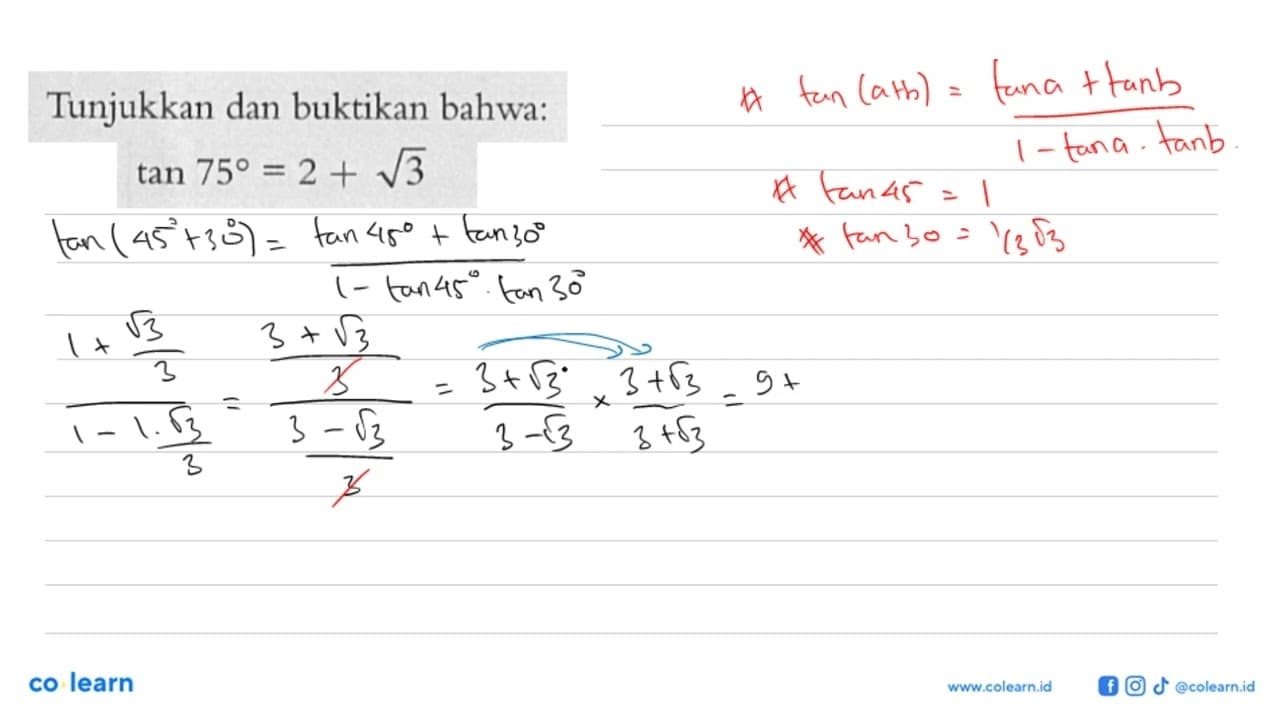 Tunjukkan dan buktikan bahwa:
tan 75° = 2 + √3
# tan (a+b) = (tan a + tan b) / (1 - tan a . tan b.)
# tan 45 = 1
* tan 30 = 1/3 √3
tan (45° + 30°) = (tan 45° + tan 30°) / (1 - tan 45° . tan 30°)
(1 + √3/3) / (1 - 1.√3/3) = ((3 + √3)/3) / ((3 - √3)/3) = (3 + √3)/(3 - √3) × (3 + √3)/(3 + √3) = 9 +
co learn
www.colearn.id @colearn.id